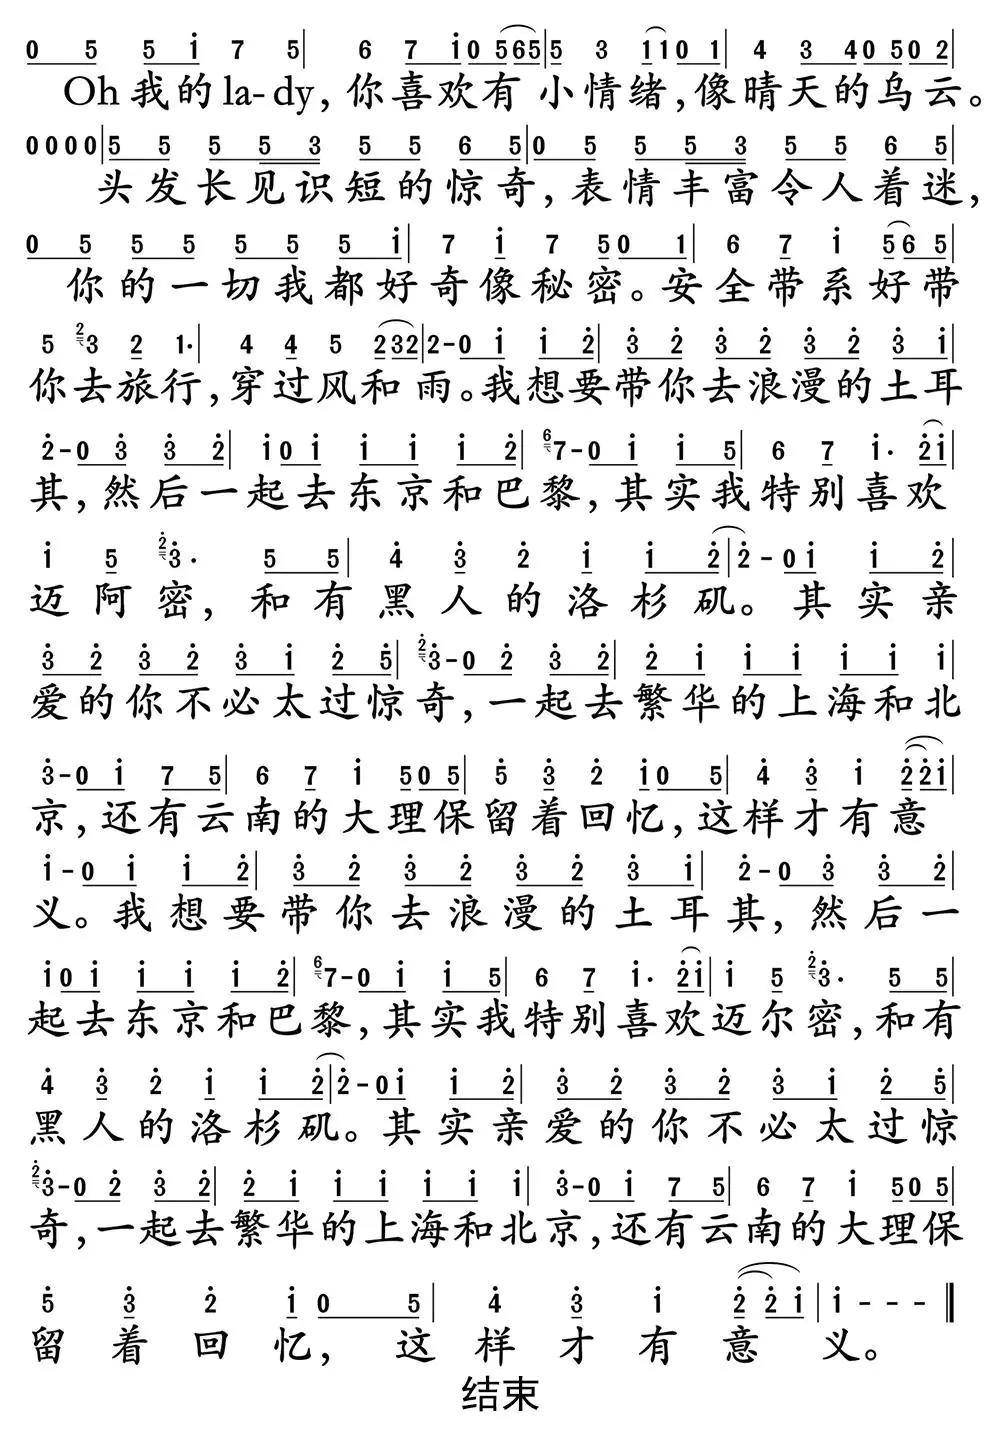 0 5 5 i 7 5| 6 7 i0 565|5 3 110 1| 4 3 40 50 2|
Oh 我的 la-dy, 你喜欢有 小情绪,像晴天的乌云。
0000|5 5 5 5 3 5 5 6 5|0 5 5 5 3 5 5 6 5|
头发长见识短的惊奇,表情丰富令人着迷,
0 5 5 5 5 5 5 i| 7 i 7 50 1| 6 7 i 56 5|
你的一切我都好奇像秘密。安全带系好带
5 23 2 1·| 4 4 5 232|2-0 i i 2| 3 2 3 2 3 2 3 i|
你去旅行,穿过风和雨。我想要带你去浪漫的土耳
2-0 3 3 2| i0 i i i i 2| 67-0 i i 5| 6 7 i· 2i|
其,然后一起去东京和巴黎,其实我特别喜欢
i 5 23· 5 5| 4 3 2 i i 2|2-0i i 2|
迈阿密,和有黑人的洛杉矶。其实亲
3 2 3 2 3 i 2 5| 23-0 2 3 2| 2 i i i i i i i|
爱的你不必太过惊奇,一起去繁华的上海和北
3-0 i 7 5| 6 7 i 50 5| 5 3 2 i0 5| 4 3 i 22i|
京,还有云南的大理保留着回忆,这样才有意
i-0 i i 2| 3 2 3 2 3 2 3 i| 2-0 3 3 2|
义。我想要带你去浪漫的土耳其,然后一
i0 i i i i 2| 67-0 i i 5| 6 7 i· 2i| i 5 23· 5 5|
起去东京和巴黎,其实我特别喜欢迈尔密,和有
4 3 2 i i 2|2-0i i 2| 3 2 3 2 3 i 2 5|
黑人的洛杉矶。其实亲爱的你不必太过惊
23-0 2 3 2| 2 i i i i i i i| 3-0 i 7 5| 6 7 i 50 5|
奇,一起去繁华的上海和北京,还有云南的大理保
5 3 2 i0 5| 4 3 i 2 2 i|i - - - ‖
留着回忆,这样才有意义。
结束